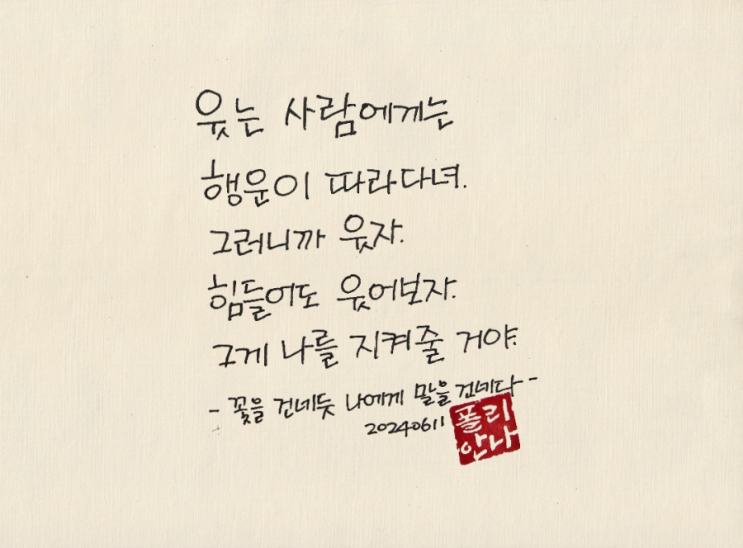 웃는 사람에게는
행운이 따라다녀.
그러니까 웃자.
힘들어도 웃어보자.
그게 나를 지켜줄 거야.
- 꽃을 건네듯 나에게 말을 건네다 -
20240611
폴리
안나